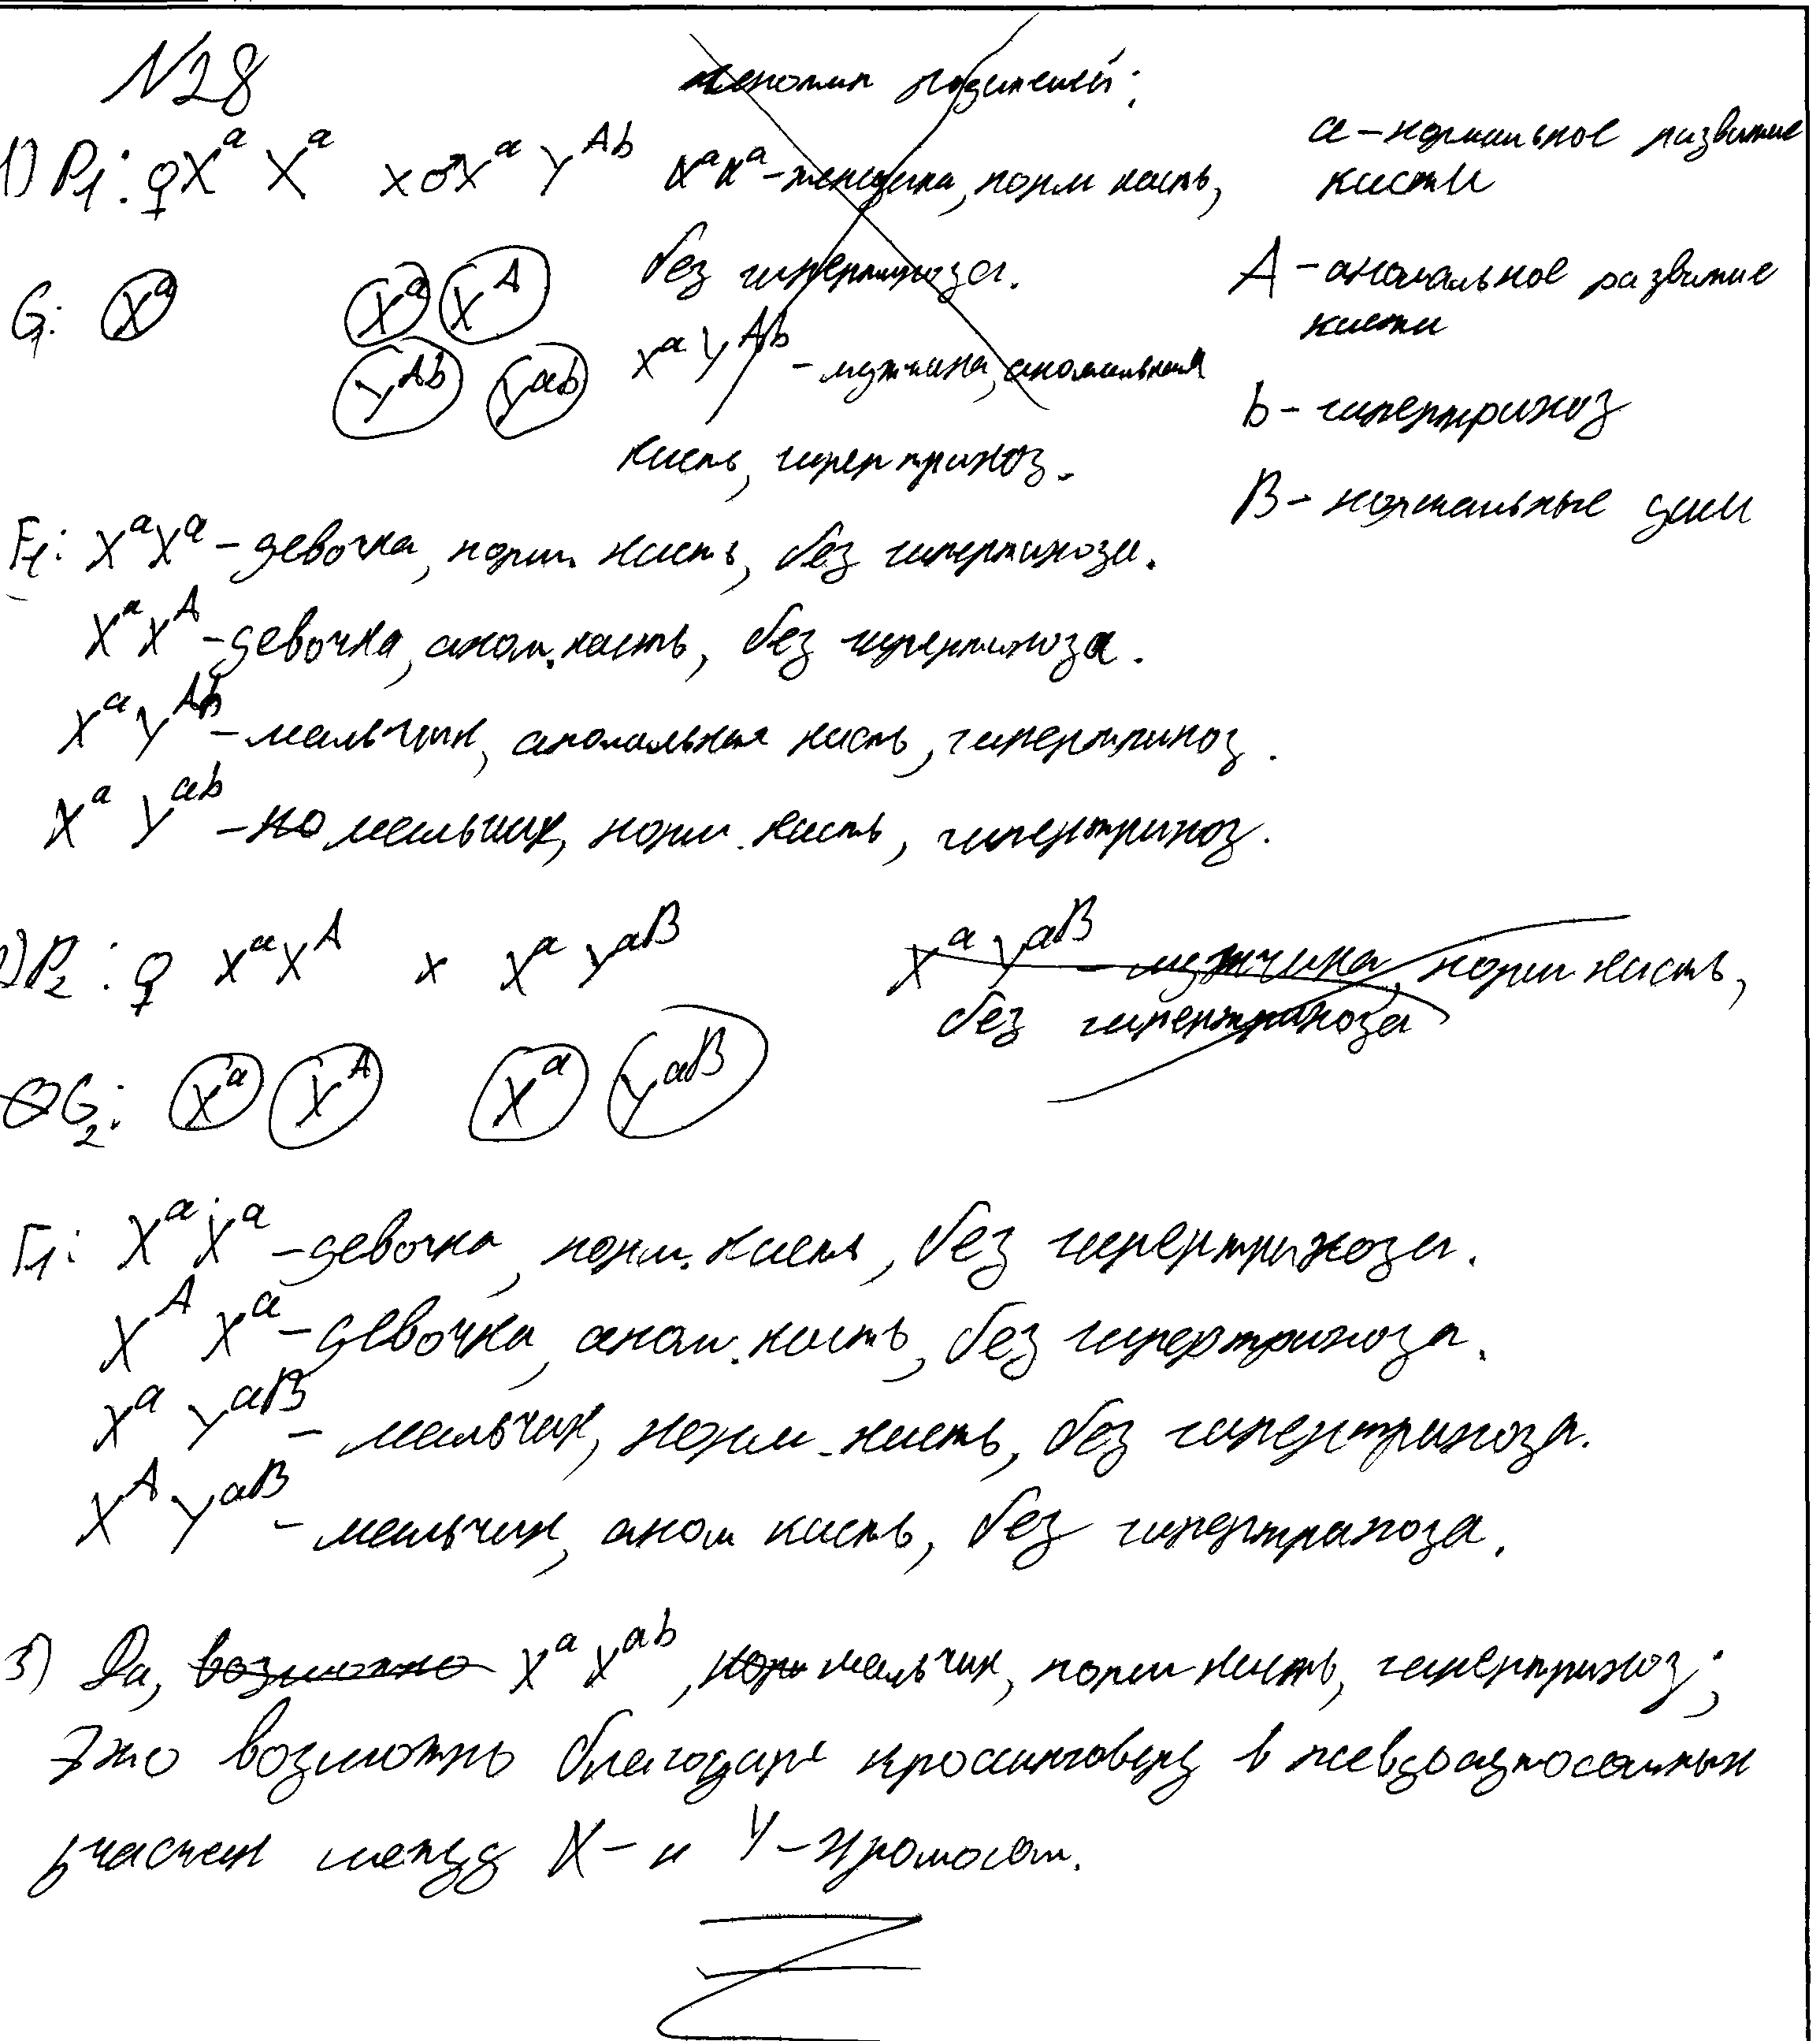 N28
генотип родителей:
1) P1: ♀X^a X^a x ♂X^a Y^Ab
X^a X^a – женщина, норм кисть,
без гипертрихоза.
X^a Y^Ab – мужчина, аномальная
кисть, гипертрихоз.
a – нормальное развитие
кисти
A – аномальное развитие
кисти
b – гипертрихоз
B – нормальные уши
G1: X^a X^a X^A
Y^Ab Y^ab
F1: X^a X^a – девочка, норм. кисть, без гипертихоза.
X^a X^A – девочка, аном. кисть, без гипертихоза.
X^a Y^Ab – мальчик, аномальная кисть, гипертрихоз.
X^a Y^ab – но мальчик, норм. кисть, гипертрихоз.
2) P2: ♀ X^a X^A x X^a Y^aB
X^a Y^aB – мужчина, норм кисть,
без гипертрихоза
G2: X^a X^A X^a Y^aB
F1: X^a X^a – девочка, норм. кисть, без гипертрихоза.
X^A X^a – девочка, аном. кисть, без гипертрихоза.
X^a Y^aB – мальчик, норм. кисть, без гипертрихоза.
X^A Y^aB – мальчик, аном кисть, без гипертрихоза.
3) Да, возможно X^a X^ab, норм мальчик, норм кисть, гипертрихоз;
Это возможно благодаря кроссинговеру в псевдоаутосомных
участках между X- и Y-хромосом.
Z